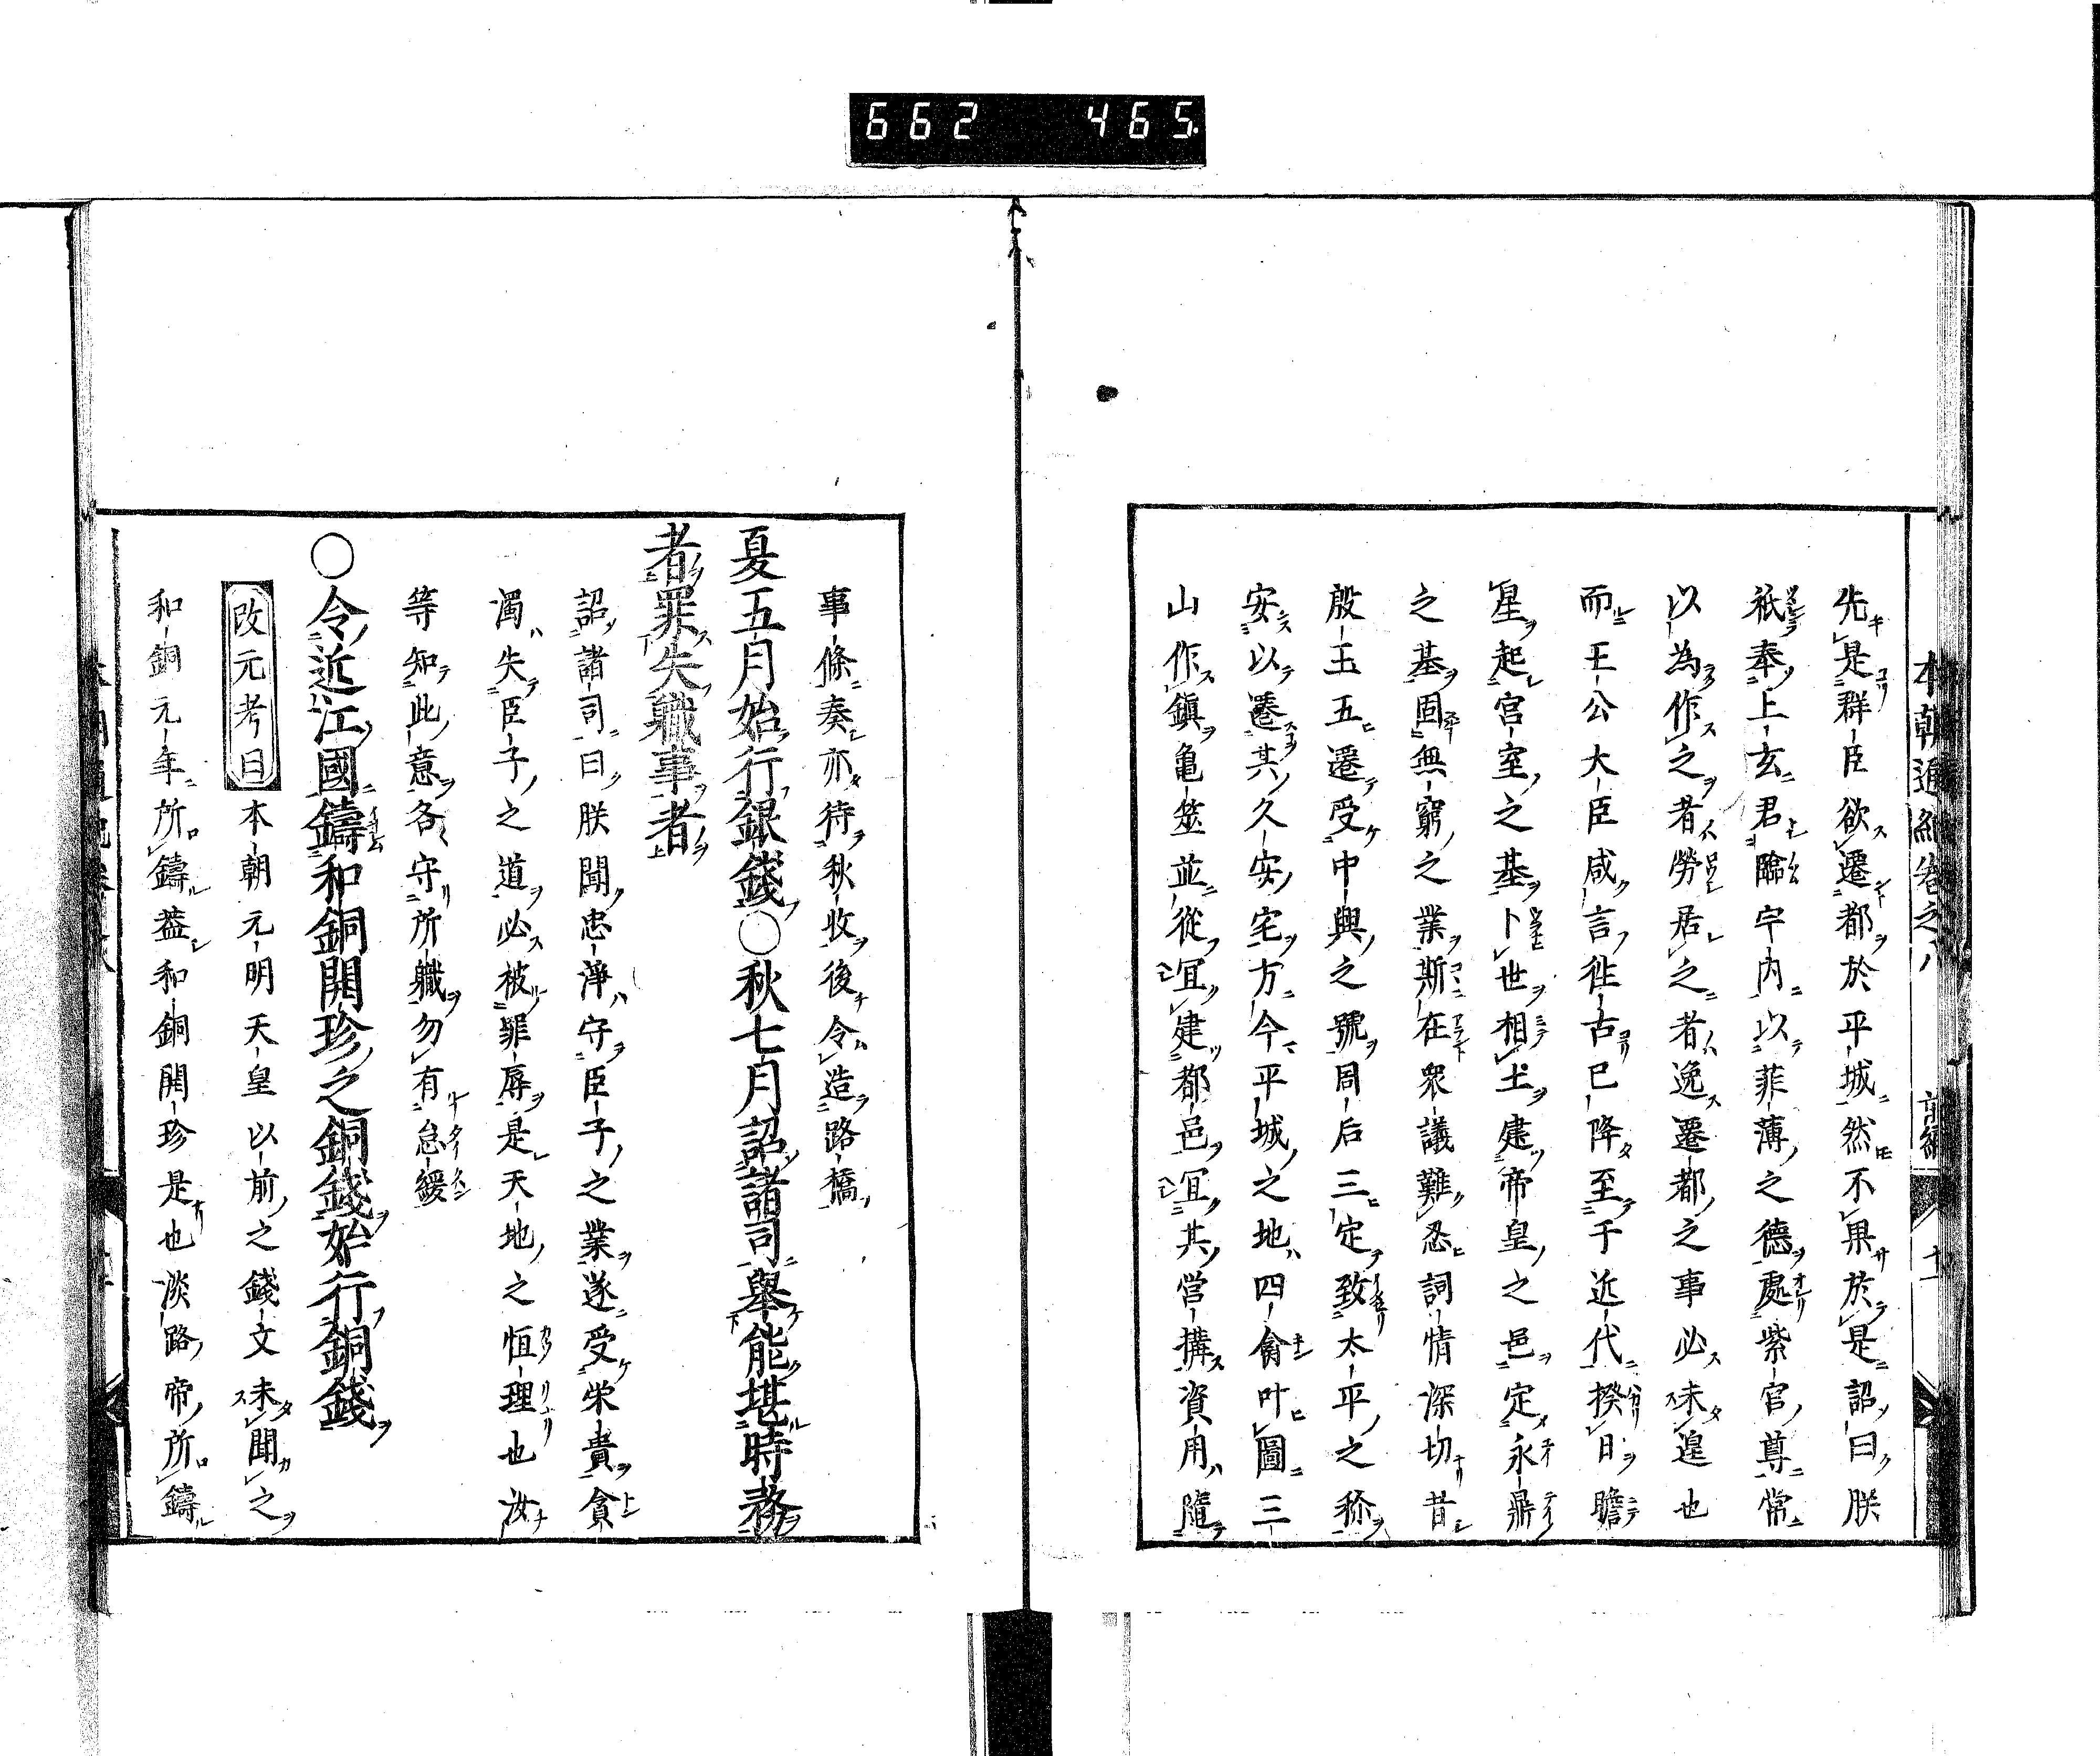 662 465.
本朝通紀卷之八 前編 十一
先是群臣欲遷都於平城然不果於是詔曰朕
祇奉上玄君臨宇内以菲薄之德處紫宮尊常
以為作之者勞居之者逸遷都之事必未遑也
而王公大臣咸言徃古已降至于近代揆日瞻
星起宮室之基卜世相土建帝皇之邑定永鼎
之基固無窮之業斯在衆議難忍詞情深切昔
殷王五遷受中興之號周后三定致太平之称
安以遷其久安宅方今平城之地四禽叶圖三
山作鎮亀筮並從冝建都邑冝其営搆資用隨
事條奏亦待秋收後令造路橋
夏五月始行銀錢○秋七月詔諸司舉能堪時務
者罪失職事者
詔諸司曰朕聞忠淨守臣子之業遂受栄貴貪
濁失臣子之道必被罪辱是天地之恒理也汝
等知此意各守所職勿有怠緩
○令近江國鑄和銅開珍之銅錢始行銅錢
改元考曰本朝元明天皇以前之錢文未聞之
和銅元年所鑄葢和銅開珍是也淡路帝所鑄